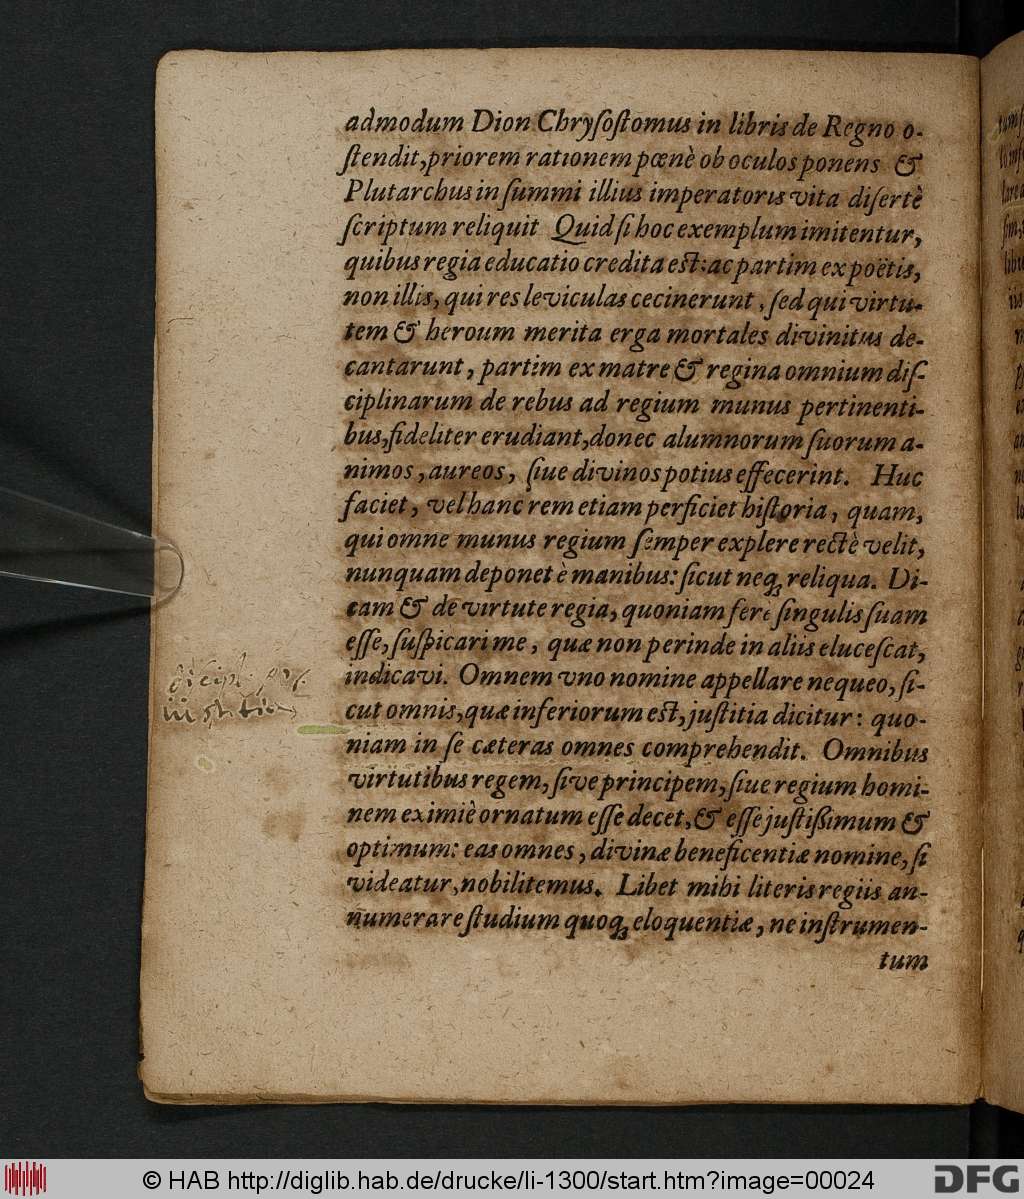 admodum Dion Chryſoſtomus in libris de Regno o-
ſtendit, priorem rationem pœnè ob oculos ponens &
Plutarchus in ſummi illius imperatoris vita diſertè
ſcriptum reliquit Quid ſi hoc exemplum imitentur,
quibus regia educatio credita est: ac partim ex poëtis,
non illis, qui res leviculas cecinerunt, ſed qui virtu-
tem & heroum merita erga mortales divinitus de-
cantarunt, partim ex matre & regina omnium diſ-
ciplinarum de rebus ad regium munus pertinenti-
bus, fideliter erudiant, donec alumnorum ſuorum a-
nimos, aureos, ſiue divinos potius effecerint. Huc
faciet, vel hanc rem etiam perficiet hiſtoria, quam,
qui omne munus regium ſemper explere rectè velit,
nunquam deponet è manibus: ſicut neq; reliqua. Di-
cam & de virtute regia, quoniam ferè ſingulis ſuam
eſſe, ſuſpicari me, quæ non perinde in aliis eluceſcat,
indicavi. Omnem vno nomine appellare nequeo, ſi-
cut omnis, quæ inferiorum est, juſtitia dicitur: quo-
niam in ſe cæteras omnes comprehendit. Omnibus
virtutibus regem, ſive principem, ſiue regium homi-
nem eximiè ornatum eſſe decet, & eſſe juſtißimum &
optimum: eas omnes, divinæ beneficentiæ nomine, ſi
videatur, nobilitemus. Libet mihi literis regiis an-
numerare ſtudium quoq; eloquentiæ, ne inſtrumen-
tum
© HAB http://diglib.hab.de/drucke/li-1300/start.htm?image=00024
DFG